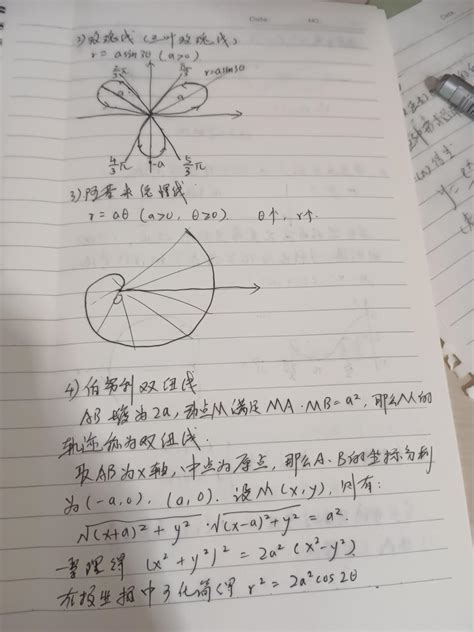 Date. NO.
Date
2) 玫瑰线 (三叶玫瑰线)
r = a sin3θ (a>0)
2/3π π/3 r=asin3θ
a a
4/3π -a 5/3π
3) 阿基米德螺线
r = aθ (a>0, θ≥0). θ↑, r↑.
O
4) 伯努利双纽线
AB 长为2a, 动点M满足 MA·MB=a², 那么M的
轨迹称为双纽线.
取AB为x轴, 中点为原点, 那么A、B的坐标分别
为(-a,0), (a,0). 设M(x,y), 则有:
√(x+a)²+y² · √(x-a)²+y² = a².
整理得 (x²+y²)² = 2a²(x²-y²)
在极坐标中可化简得 r² = 2a²cos2θ